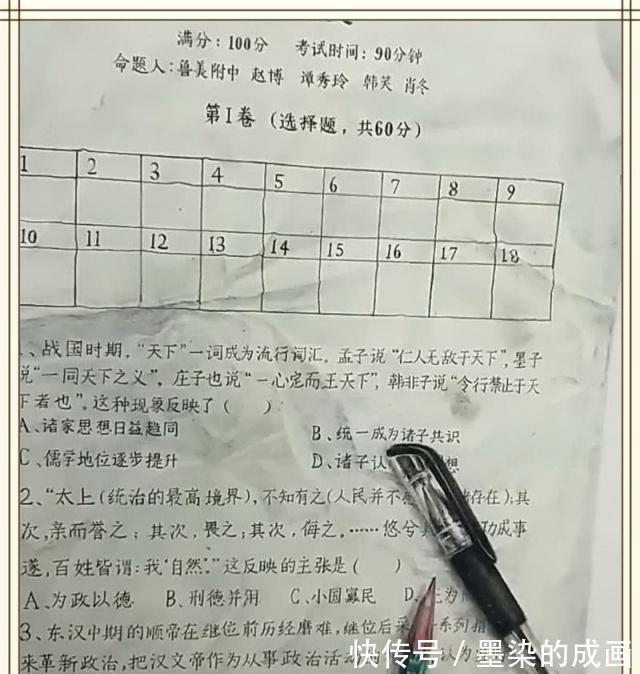 满分：100分 考试时间：90分钟
命题人：鲁美附中 赵博 谭秀玲 韩笑 肖冬
第I卷（选择题，共60分）
1 2 3 4 5 6 7 8 9
10 11 12 13 14 15 16 17 18
、战国时期，“天下”一词成为流行词汇。孟子说“仁人无敌于天下”，墨子
说“一同天下之义”，庄子也说“一心定而王天下”，韩非子说“令行禁止于天
下者也”。这种现象反映了（ ）
A、诸家思想日益趋同 B、统一成为诸子共识
C、儒学地位逐步提升 D、诸子认 想
2、“太上（统治的最高境界），不知有之（人民并不 存在）；其
次，亲而誉之；其次，畏之；其次，侮之。……悠兮 功成事
遂，百姓皆谓：我‘自然’。”这反映的主张是（ ）
A、为政以德 B、刑德并用 C、小国寡民 D、 为
3、东汉中期的顺帝在继位前历经磨难，继位后采 系列
来革新政治，把汉文帝作为从事政治活 认为
快传号／墨染的成画